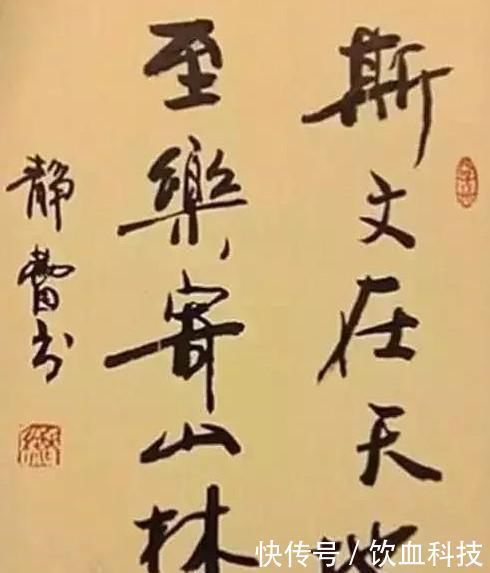 斯文在天地
至樂寄山林
静蕾书
快传号 / 饮血科技